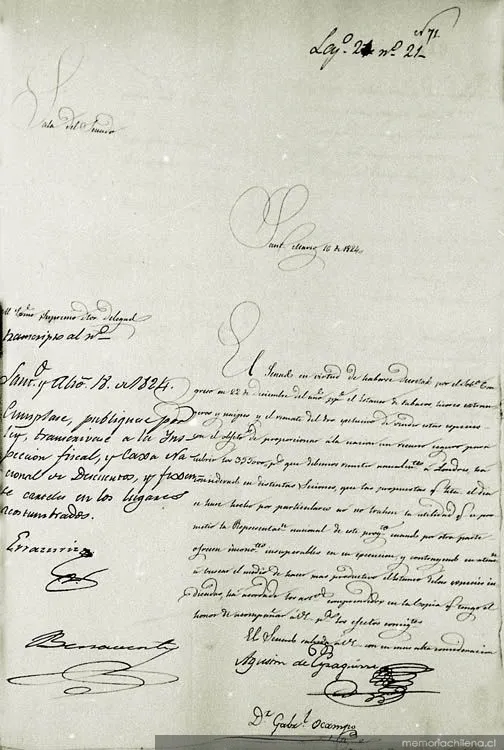 Nº 71.
Leg.º 2 nº 21
Sala del Senado
Sant. Marzo 16 de 1824
Al Exmo Supremo Dtor Delegad
transcripto al nº
Sant.º y Abr.º 18. de 1824.
Cumplase, publiquese por
ley, transcrivase a la Ins
peccion fiscal, y Caxa Na
cional de Descuentos, y fixen
se carteles en los lugares
acostumbrados.
Errazuriz
Benavente
El Senado en virtud de haberse decretado por el Sob. Con
greso en 22 de diciembre del año el estanco de tabacos, licores extran
geros y naipes y el remate del dro exclusivo de vender estas especies
con el objeto de proporcionar a la nacion un recurso seguro para
cubrir los 355000 p.s que debemos remitir anualm.te a Londres, ha
considerado en distintas Sesiones, que las propuestas q.e hta. el dia
se han hecho por particulares no trahen la utilidad q.e se pro
metio la Representac.n nacional de este proy.to cuando por otra parte
ofrecen insuperables en su execucion, y contrayend
a buscar el medio de hacer mas productivo el estanco de las especies in
dicadas, ha acordado los art.os comprendidos en la Copia q.e tengo el
honor de acompañar a V.E. p.a los efectos consig.tes
El Senado saluda a V.E. con su mas alta consideracion
Agustin de Eyzaguirre
D.r Gab.l Ocampo
memoriachilena.cl